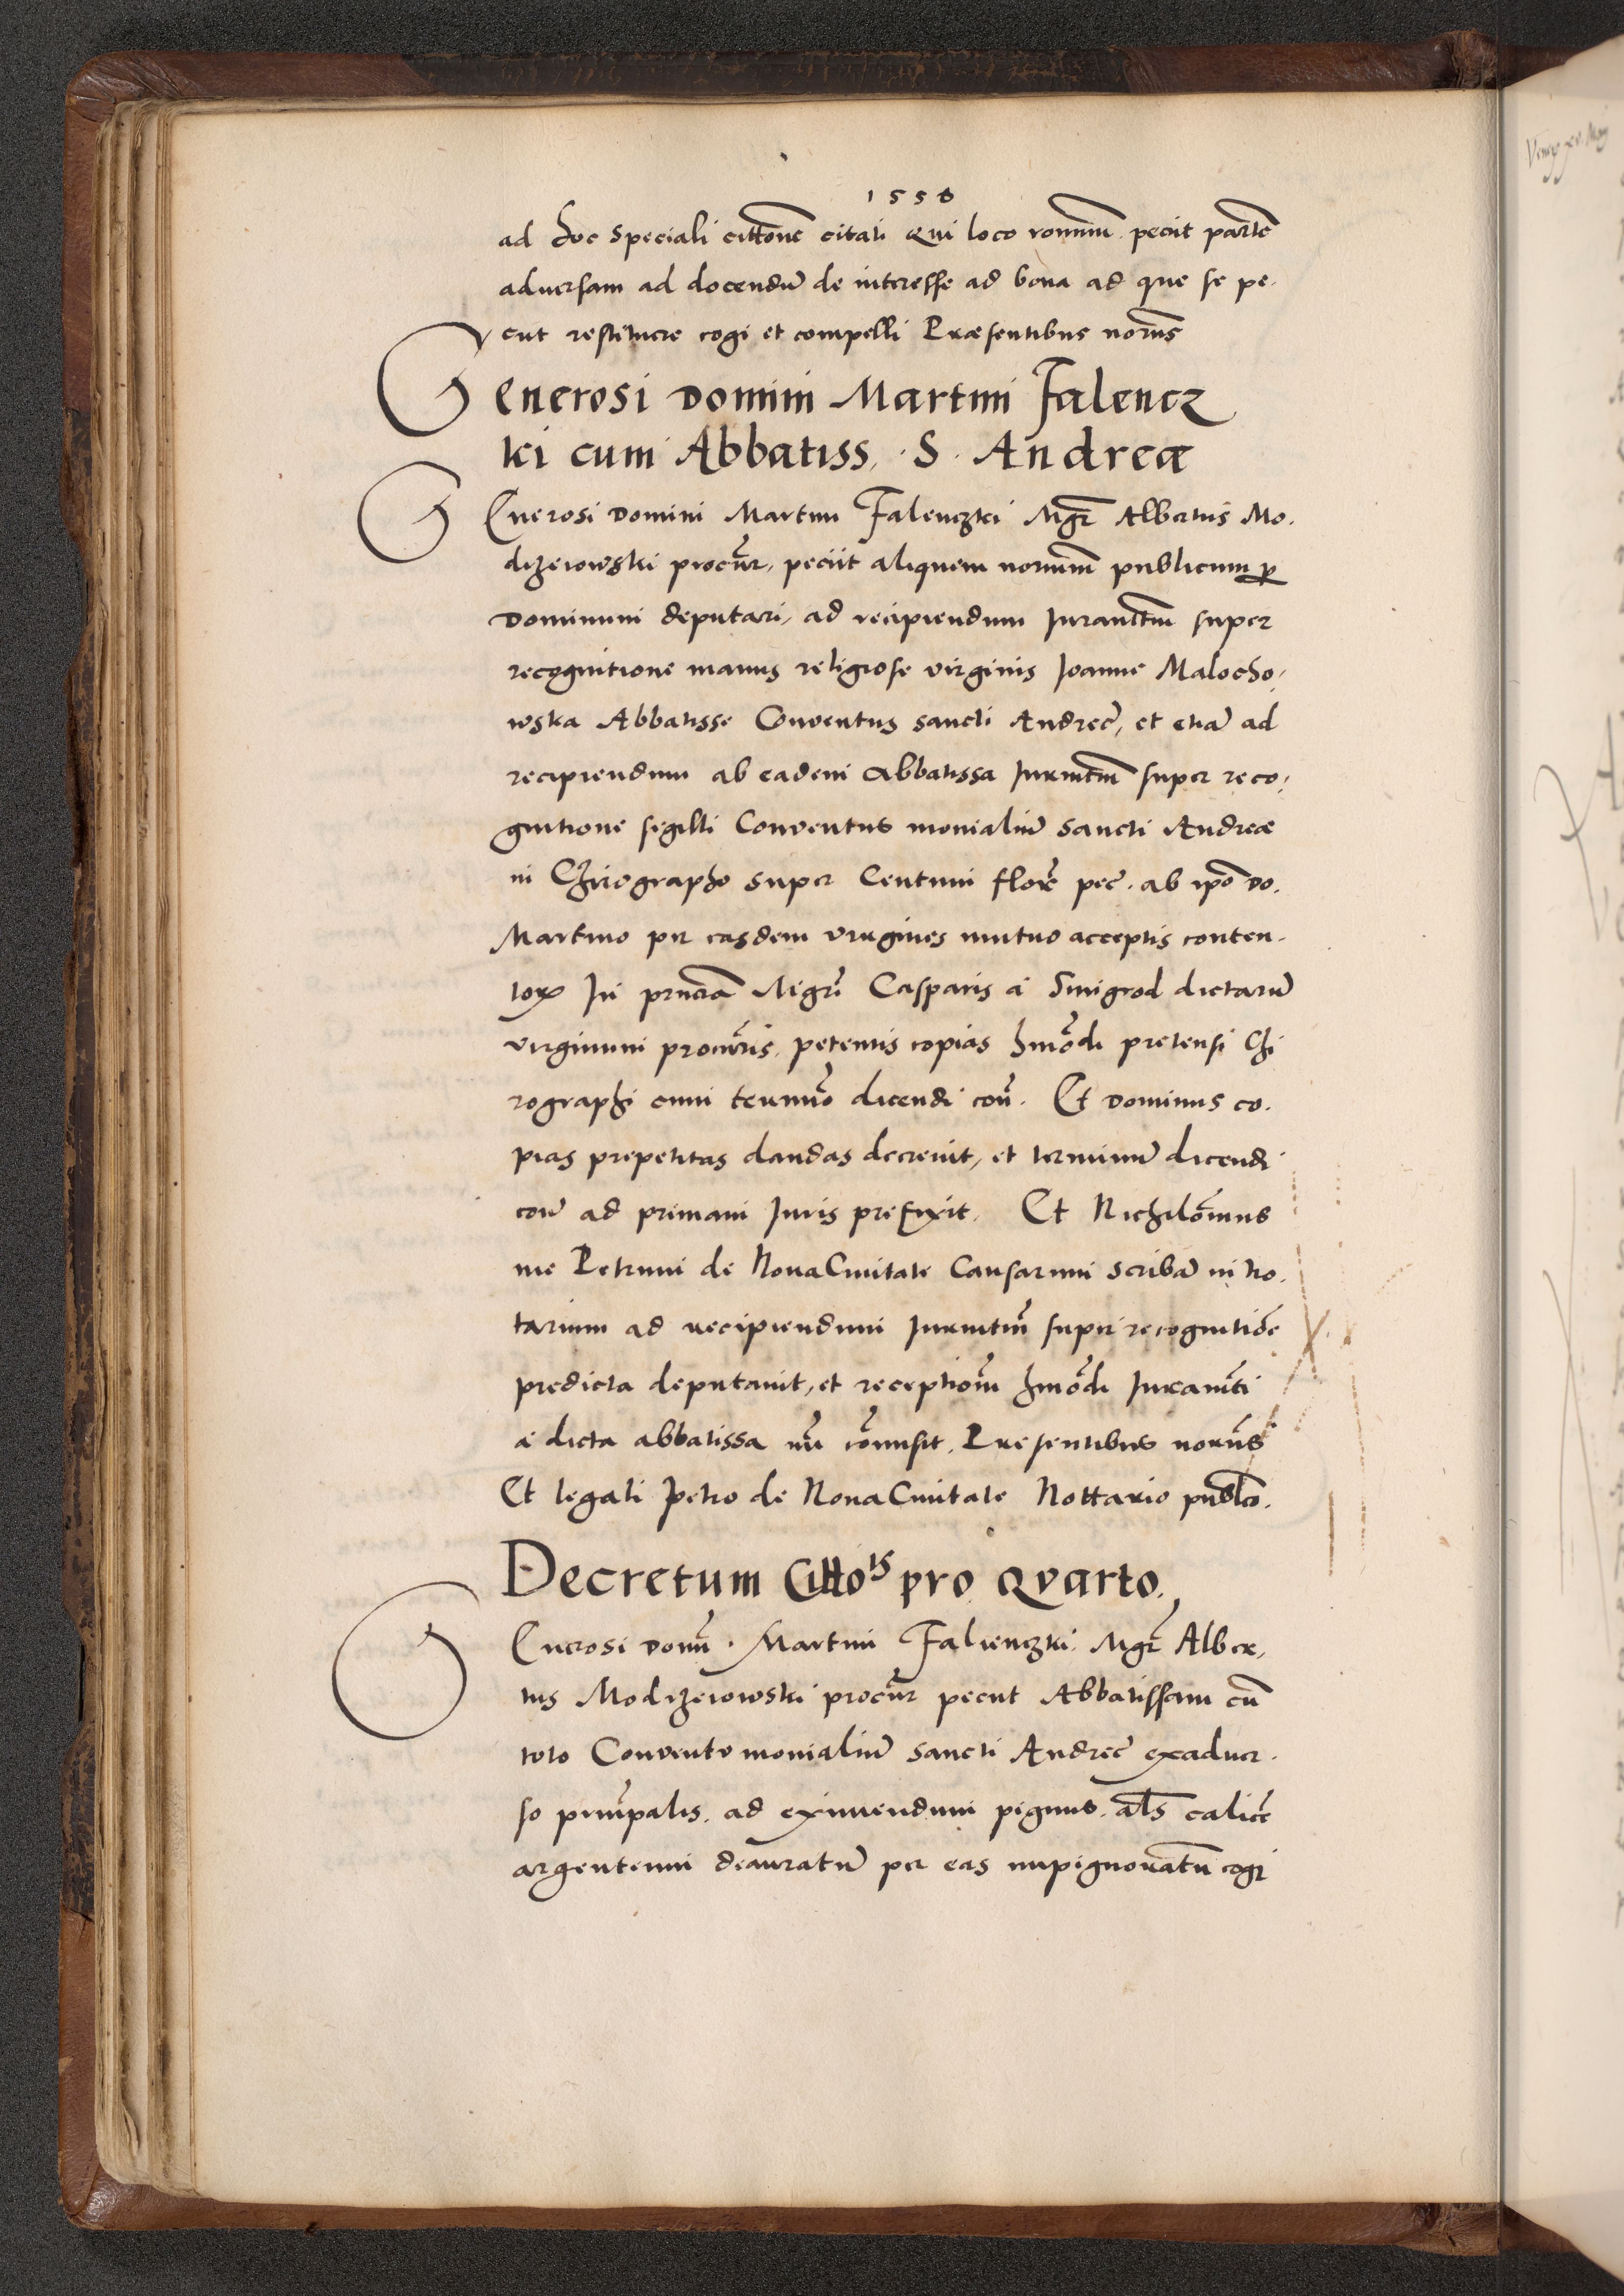 1550
ad hoc speciali cittōne citati Qui loco rōmium peciit partē
aduersam ad docendū de interesse ad bona ad que se pe-
ciit restituere cogi et compelli Præsentibus norijs
Generosi Domini Martini Falencz
ki cum Abbatiss. S. Andreæ
GEnerosi Domini Martini Falenczki Mgr̄ Albertus Mo-
dizeiowski procūr, peciit aliquem norium publicum per
Dominum deputari, ad recipiendum Juramtum super
recognitione manus religiose virginis Joanne Malocho-
wska Abbatisse Conventus sancti Andreē, et etiā ad
recipiendum ab eadem Abbatissa Juramtum super reco-
gnitione sigilli Conventus monialiū sancti Andreæ
in Chirographo super Centum florē pec. ab ipō Do.
Martino per easdem virgines mutuo acceptis conten-
torum In prnciā Mgri Casparis a Smigrod dictarū
virginum procuris petentis copias hmōdi pretensi Chi
rographi cum termīo dicendi con̄. Et Dominus co-
pias prepetitas dandas decreuit, et terminū dicendi
con̄ ad primam Juris prefixit. Et Nichilōminus
me Petrum de NouaCiuitate Causarum scribā in no-
tarium ad recipiendum Juramtum super recognitiōe
predicta deputauit, et receptiōem hmōdi Juramti
a dicta abbatissa mī cōmisit. Presentibus norijs
Et legali Petro de NouaCiuitate Nottario publco.
Decretum Cittois pro Qvarto.
GEnerosi Domī. Martini Falienczki Mgr̄ Alber-
tus Modizeiowski procūr peciit Abbatissam cū
toto Conventv monialiū sancti Andreē exaduer-
so prinpalis. ad eximendum pignus. als calicē
argenteum deauratū per eas inpignoratū cogi